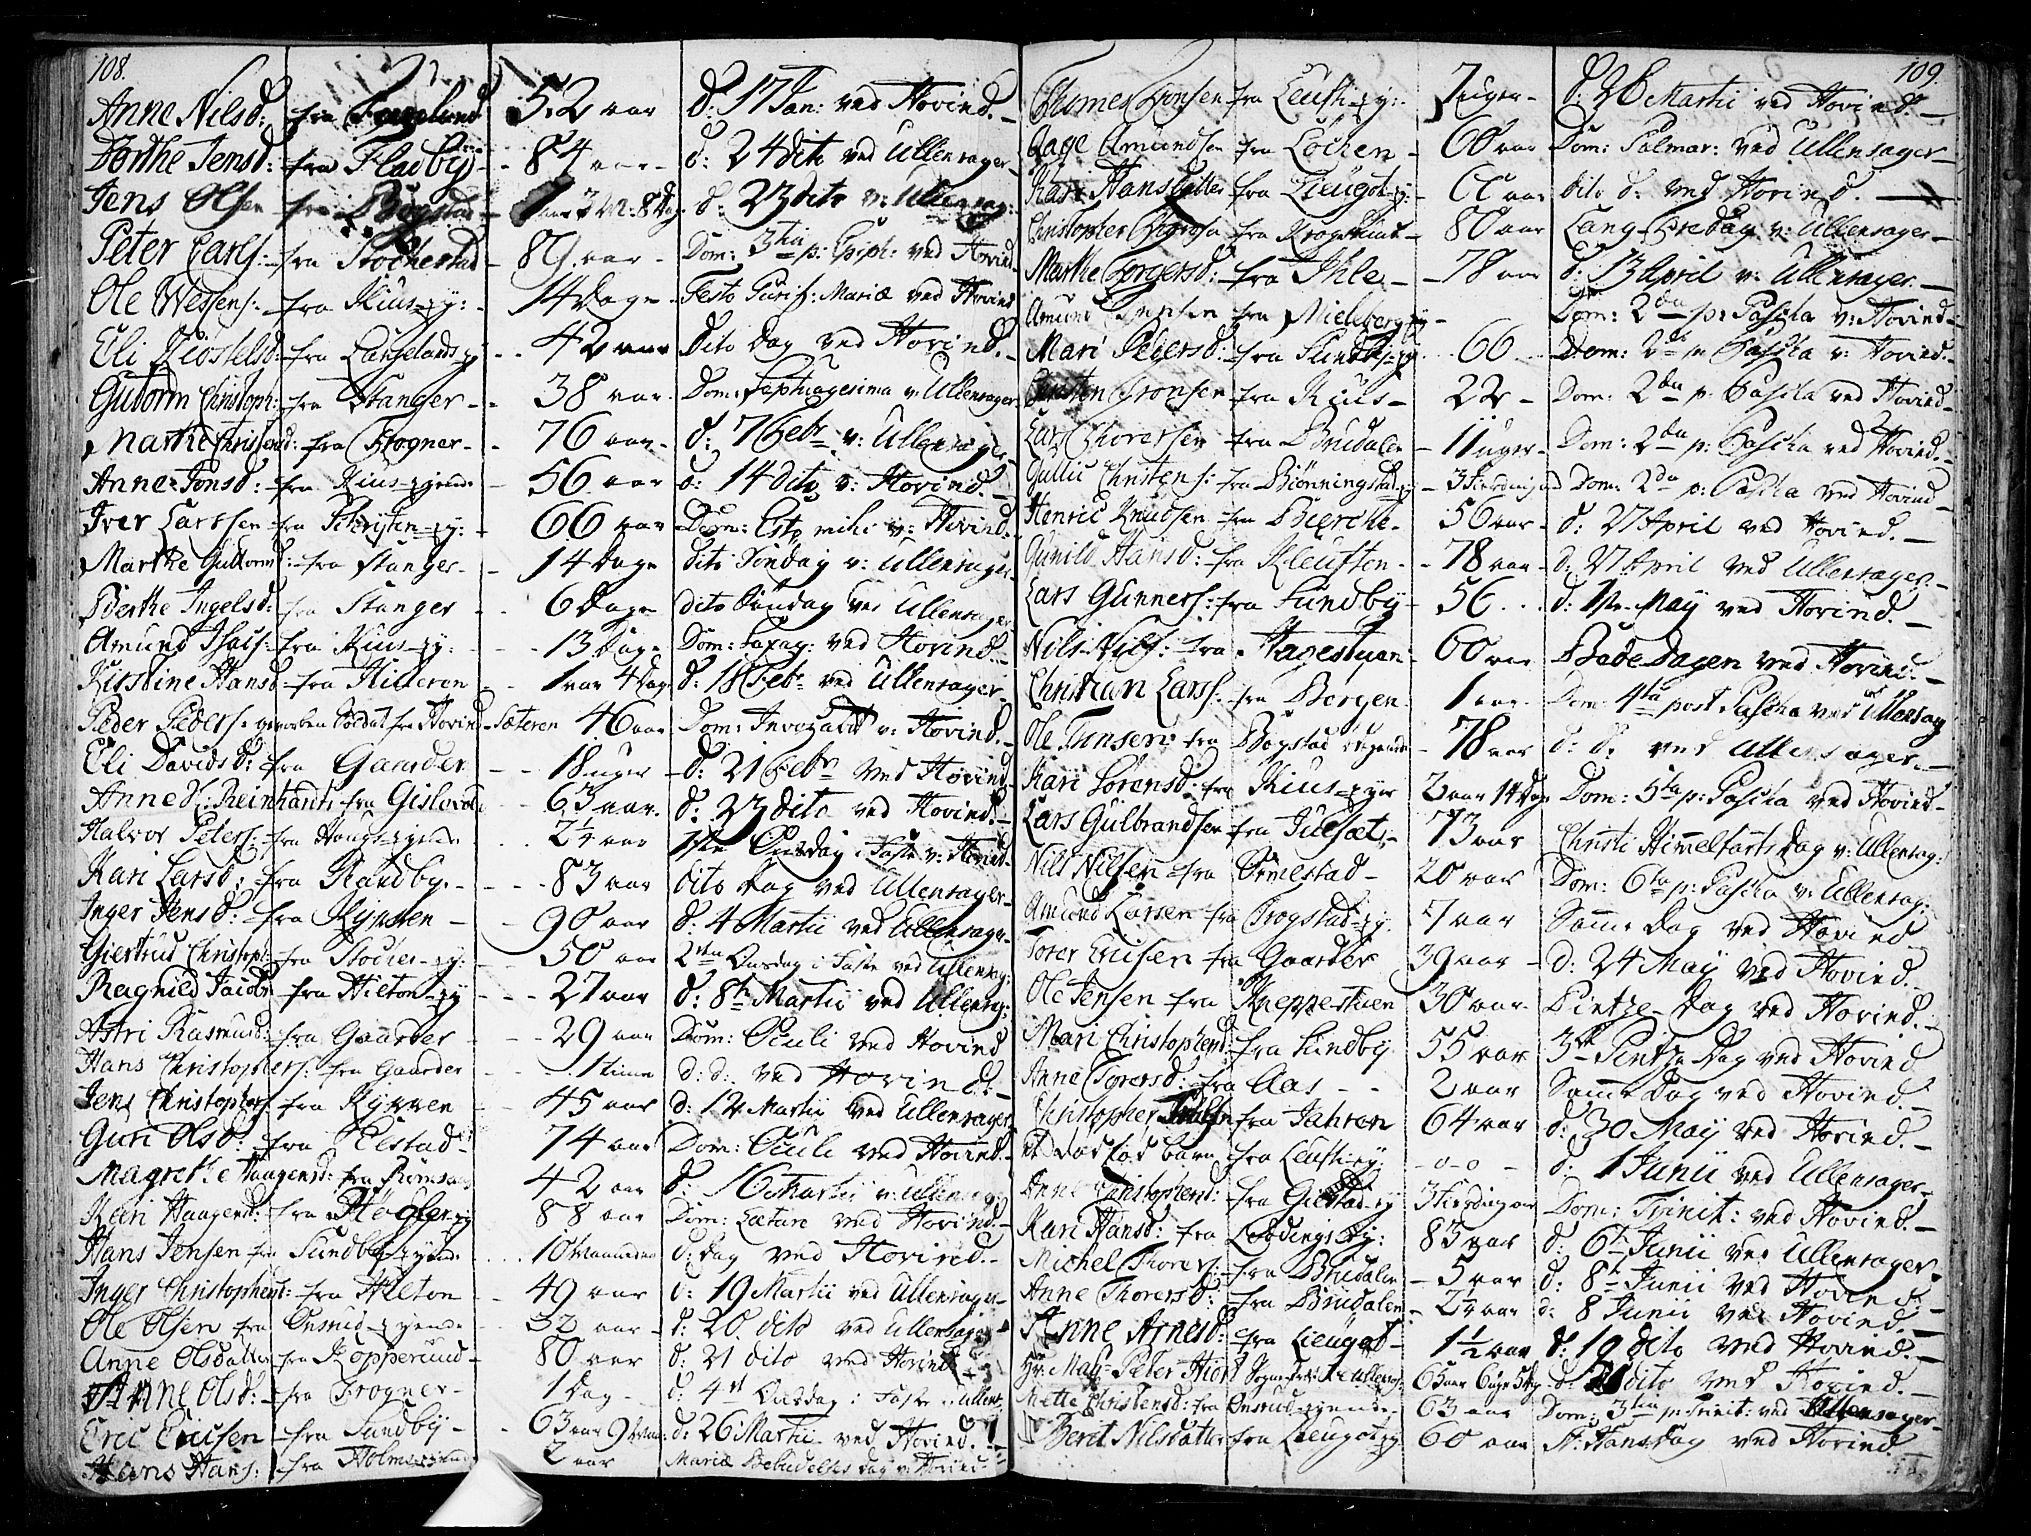 108.
Anne Nilsd: fra Fuglend 52 aar d: 17 Jan: ved Hovind.
Dorthe Jensd: fra Fladby 84 aar d: 24 dito ved Ullensager
Jens Olsen fra Bogstad 3 M: 8 Dag: d: 23 dito v: Ullensag:
Peter Carls: fra Stochestad 89 aar Dom: 3tia p: Epiph: ved Hovind
Ole Wessens: fra Kius-ey: 14 Dage Festo Purif: Mariæ ved Hovind
Eli Kiostelsd: fra Langelands-ey 42 aar Dito Dag ved Hovind.
Gutorm Christoph: fra Stanger 38 aar Dom: Septuagesima v: Ullensager
Marthe Christensd: fra Frogner 76 aar d: 7 Febr v: Ullensager
Anne Jonsd: fra Kius-eyende 56 aar d: 14 dito v: Hovind.
Iver Larssen fra Schrysten-ey: 66 aar Dom: Esto mihi v: Hovind.
Marthe Guttormsd: fra Stanger 14 Dage dito Søndag v: Ullensager
Berthe Ingelsd: fra Stanger 6 Dage dito Søndag ved Ullensager
Amund Isacs: fra Kius-ey: 13 Dage Dom: Sexag: ved Hovind.
Kirstine Hansd fra Hilleren 1 aar 4 Dage d: 18 Febr ved Ullensager
Peder Peders: gevorben Soldat fra Hovind-Sæteren 46 aar Dom: Invocavit v: Hovind.
Eli Davidsd: fra Gaarder 18 uger d: 21 Febr ved Hovind
Anne Reinhardt fra Gislevold 63 aar. d: 23 dito ved Hovind.
Halvor Peters: fra Haugs-eyende 2 1/4 aar 1ste Onsdag i Faste v: Hovind
Kari Larsd: fra Randby 83 aar dito Dag ved Ullensager
Inger Jensd: fra Kynnen 90 aar d: 4 Martii ved Ullensager
Giertrud Christoph: fra Stocher-ey: 50 aar 2den Onsdag i Faste ved Ullensag:
Ragnild Jacobs fra Hilton-ey 27 aar d: 8 Martii ved Ullensag:
Astri Rasmusd: fra Gaarder 29 aar Dom: Oculi ved Hovind
Hans Christophers: fra Gaarder 1 time d: d: ved Hovind.
Jens Christophers fra Kynnen 45 aar d: 12 Martii ved Ullensager
Guri Olsd: fra Elstad 74 aar Dom: Oculi ved Hovind.
Magrethe Haagensd: fra 42 aar d: 16 Martii v: Ullensager
Kari Haagend: fra Hogler-ey 88 aar Dom: Lætare ved Hovind.
Hans Jensen fra Sundby-eyende 10 Maaneder d: Dag ved Hovind.
Inger Christophersd: fra Hilton 49 aar d: 19 Martii ved Ullensager
Ole Olsen fra Onsrud-eyende 32 aar d: 20 dito ved Ullensager
Anne Olsdatter fra Kopperud 80 aar d: 21 dito ved Hovind
Anne Olsd: fra Frogner 1 Dag d: 4de Onsdag i Faste v: Ullens:
Eric Ericsen fra Sundby 63 aar d: 26 Martii ved Hovind.
Hans Hans: fra Holms-eyende 2 aar Mariæ Bebudelses Dag v: Hovind
109.
Thomes Jonsen fra Leusti-ey: 7 uger d: 26 Martii ved Hovind.
Aage Amundsen fra Lochen 60 aar Dom: Palmar: ved Ullensager
Kari Hansdatter fra Lieugot-ey: aar dito d: ved Hovind.
Christopher fra 80 aar Lang Fredag v: Ullensager
Marthe Torgersd: fra Ihle 78 aar d: 13 April v: Ullensager
Amund fra Mielcberg-ey Dom: 2da p: Pascha v: Hovind
Mari Pedersd: fra Sundby-ey 66 Dom: 2da p: Pascha v: Hovind.
Tronsen fra Kius 22 Dom: 2da p: Pascha ved Hovind
Lars Thoressen fra Brudalen 11 uger Dom: 2da p: Pascha ved Hovind.
Gullic Christens: fra Biønningstad-ey 3 fierdingaar Dom: 2da p: Pascha ved Hovind
Henric Knudsen fra Bierche 56 aar d: 27 April ved Hovind.
Gunild Hansd: fra Kleufton 78 aar d: 27 April ved Ullensager.
Lars Gunners: fra Sundby 56 d: 1 May ved Hovind.
Nils Nils: fra Hagestuen 60 aar Bede Dagen ved Hovind.
Christian Larss: fra Borgen 1 aar Dom: 4ta post Pascha ved Ullensag
Ole Tansen fra Bogstad 78 aar d: d: ved Ullensager.
Kari Sørensd: fra Kius-eyer 2 aar 14 Dage Dom: 5ta p: Pascha ved Hovind
Lars Gulbrandsen fra Julset 73 aar Christi Himmelfarts Dag v: Ullensag:
Nils Nilsen fra Ormestad 20 aar Dom: 6ta p: Pascha v: Ullensag:
Amund Larsen fra Trogstad-ey. 7 aar Samme Dag ved Hovind
Torer Ericsen fra Gaarder 39 aar d: 24 May ved Hovind.
Ole Jensen fra Kneppestuen 30 aar Pintze-Dag ved Hovind.
Mari Christophersd: fra Sundby 55 aar 3die Pintze Dag ved Hovind
Anne Torersd: fra Aas 2 aar Samme Dag ved Hovind.
Christopher fra Jahren 64 aar d: 30 May ved Hovind.
et dødfød barn fra Leusti-ey -o-o- d: 1 Junii ved Ullensager
Christophersd: fra Gielstad-ey 3 fierdingaar Dom: Trinit: ved Hovind.
Kari Hansd: fra Lødings Ey: 83 aar d: 6te Junii ved Ullensager
Michel Thorers: fra Brudalen 5 aar d: 8 Junii ved Hovind.
Anne Thorersd: fra Brudalen 2 1/4 aar d: 8 Junii ved Hovind.
Anne Arnesd: fra Lieugod 1 1/2 aar d: 19 dito ved Hovind.
Hr: Mag: Peter Hiort 65 aar 6 uger 5 dag d: 21 dito ved Hovind.
Mette Christensd: fra Onsrud-eyende 63 aar Dom: 3tia p: Trinit: ved Ullensager
Beret Nilsdatter fra Lieugot-ey 60 aar St: Hans Dag ved Hovind